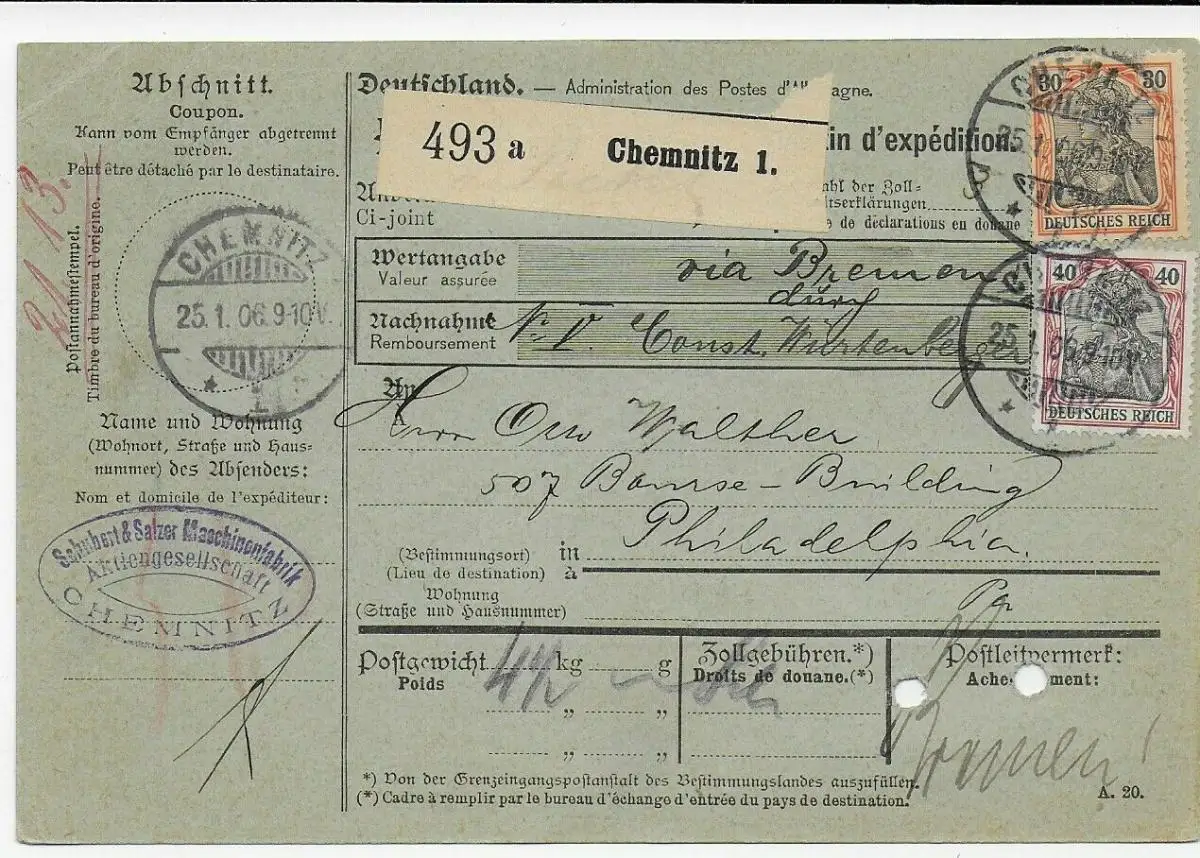 Abschnitt.
Coupon.
Kann vom Empfänger abgetrennt
werden.
Peut être détaché par le destinataire.
13.
Postannahmestempel.
Timbre du bureau d'origine.
CHEMNITZ
25.1.06.9-10V.
1
Name und Wohnung
(Wohnort, Straße und Haus-
nummer) des Absenders:
Nom et domicile de l'expéditeur:
Schubert & Salzer Maschinenfabrik
Aktiengesellschaft
CHEMNITZ
Deutschland. — Administration des Postes d'
agne.
493 a Chemnitz 1.
in d'expédition.
Ci-joint
hl der Zoll-
tserklärungen
e de déclarations en douane
Wertangabe
Valeur assurée
via Bremen
durch
Nachnahme
Remboursement
Const. Würtenberger
An
Herrn Otto Walther
507 Bourse-Building
(Bestimmungsort)
(Lieu de destination)
in
à
Philadelphia.
Wohnung
(Straße und Hausnummer)
Pa
Postgewicht kg g
Poids
" "
" "
Zollgebühren.*)
Droits de douane.(*)
Postleitvermerk:
Ache ment:
Bremen!
*) Von der Grenzeingangspostanstalt des Bestimmungslandes auszufüllen.
(*) Cadre à remplir par le bureau d'échange d'entrée du pays de destination.
A. 20.
30 30
DEUTSCHES REICH
40 40
DEUTSCHES REICH